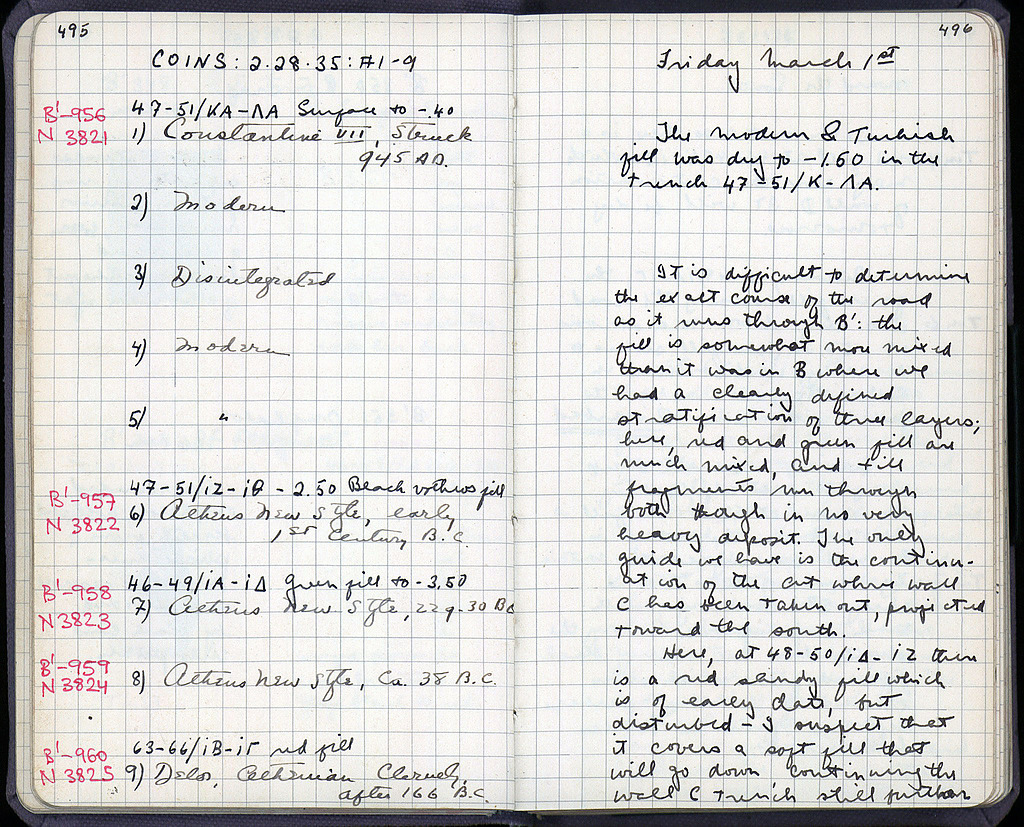 495
COINS: 2.28.35: #1-9
B'-956
N 3821
47-51/KA-ΛA Surface to -.40
1) Constantine VII, Struck
945 AD.
2) Modern
3) Disintegrated
4) Modern
5) "
B'-957
N 3822
47-51/iZ-iθ -2.50 fill
6) Athens New Style, early,
1st Century B.C.
B'-958
N 3823
46-49/iA-iΔ green fill to -3.50
7) Athens New Style, 229-30 BC
B'-959
N 3824
8) Athens New Style, Ca. 38 B.C.
B'-960
N 3825
63-66/iB-iΓ red fill
9) Delos, Athenian Cleruchy,
after 166 B.C.
496
Friday March 1st
The modern & Turkish
fill was dug to -1.60 in the
trench 47-51/K-ΛA.
It is difficult to determine
the exact course of the road
as it runs through B': the
fill is somewhat more mixed
than it was in B where we
had a clearly defined
stratification of three layers;
here, red and green fill are
much mixed, and fill
fragments run through
both though in no very
heavy deposit. The only
guide we have is the continu-
ation of the cut where wall
C has been taken out, projected
toward the south.
Here, at 48-50/iΔ-iZ there
is a red sandy fill which
is of early date, but
disturbed - I suspect that
it covers a soft fill that
will go down continuing the
wall C trench still further